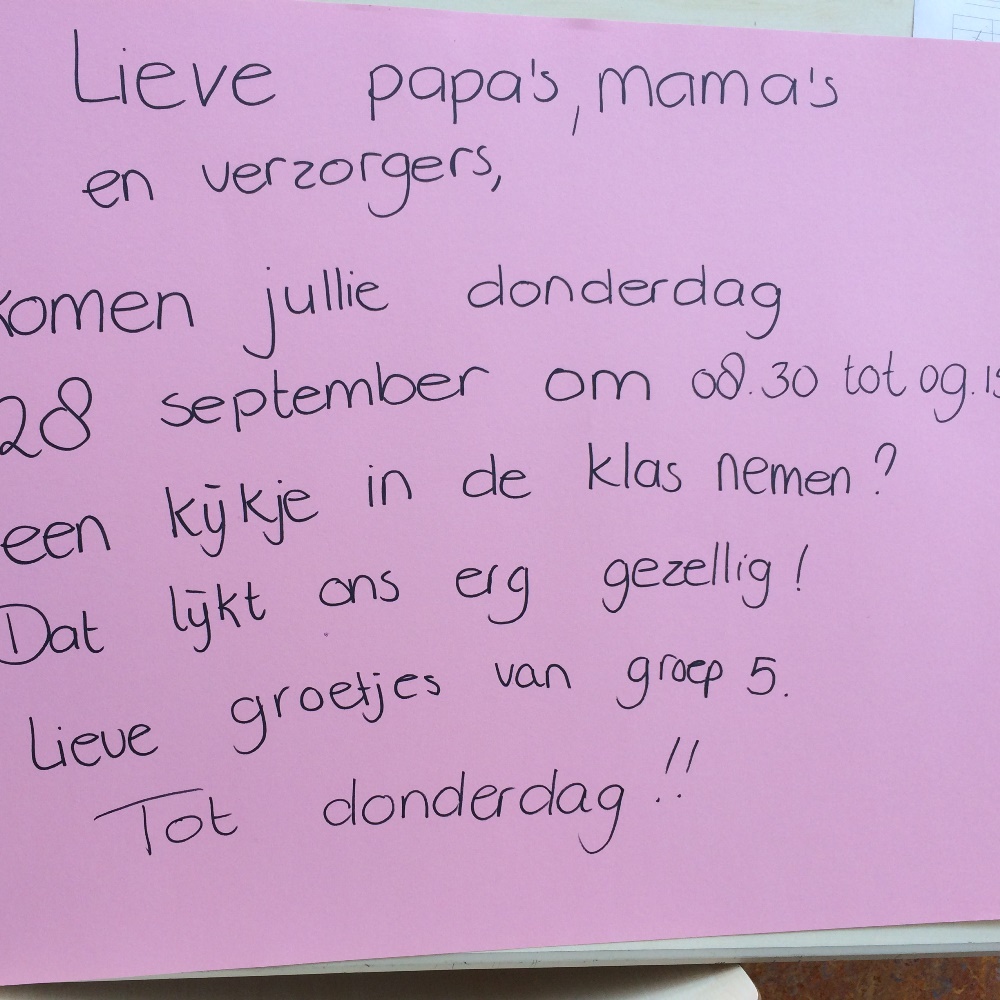 Lieve papa's, mama's
en verzorgers,
Komen jullie donderdag
28 september om 08.30 tot 09.15
een kijkje in de klas nemen?
Dat lijkt ons erg gezellig!
Lieve groetjes van groep 5.
Tot donderdag!!